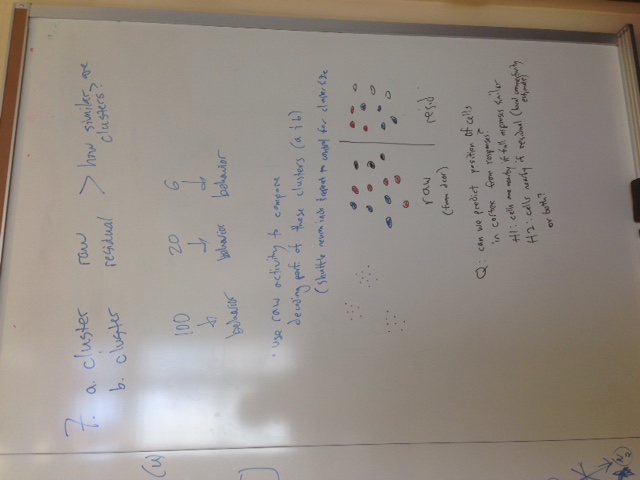 7. a. cluster raw > how similar are
b. cluster residual clusters?
(u)
100 20 6
behavior behavior behavior
• use raw activity to compare
decoding perf. of these clusters (a & b)
(shuffle neuron inds & repeat to control for cluster size
raw resid
(from dcor)
Q: can we predict position of cells
in cortex from responses?
H1: cells are nearby if full responses similar
H2: cells nearby if residual (local connectivity
estimate)
or both?